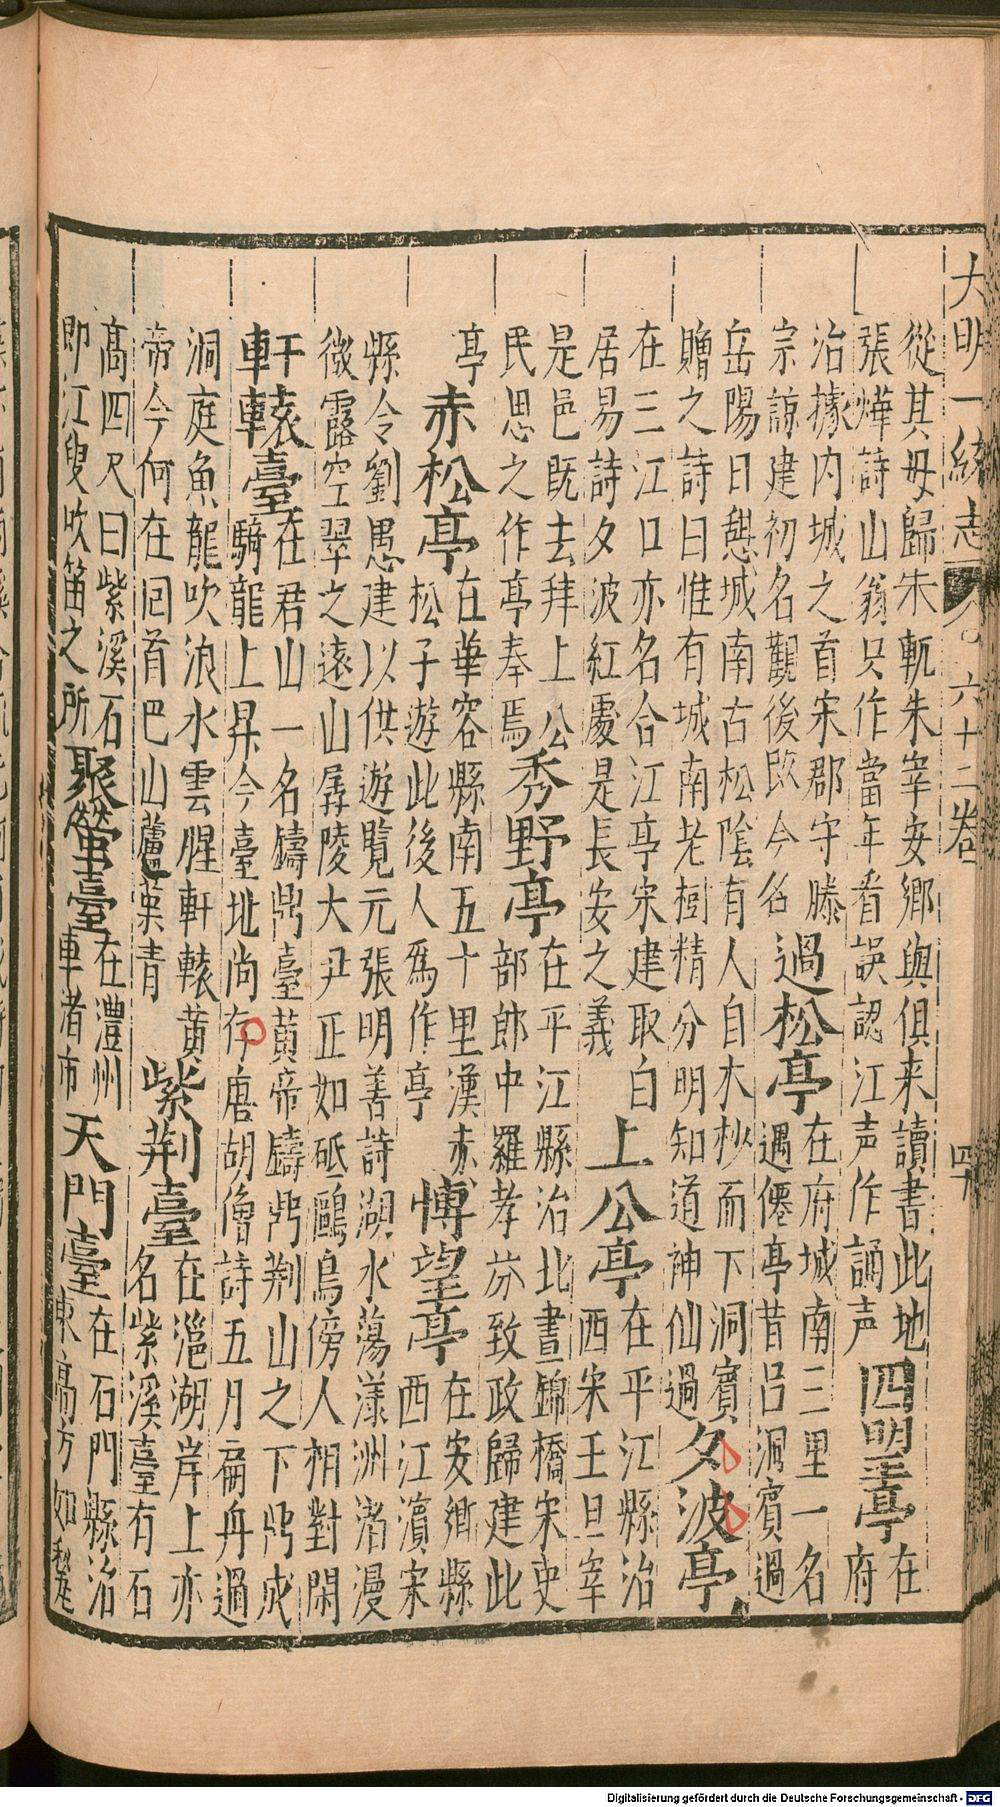 大明一統志 六十二卷 四十
從其母歸朱軏朱宰安鄉與俱来讀書此地 四望亭 在
張燁詩山翁只作當年看誤認江声作誦声 府
治據内城之首宋郡守滕 過松亭 在府城南三里一名
宗諒建初名觀後改今名 遇僊亭昔吕洞賓過
岳陽日憩城南古松陰有人自木杪而下洞賓
贈之詩曰惟有城南老樹精分明知道神仙過 夕波亭
在三江口亦名合江亭宋建取白 上公亭 在平江縣治
居易詩夕波紅處是長安之義 西宋王旦宰
是邑既去拜上公 秀野亭 在平江縣治北晝錦橋宋吏
民思之作亭奉焉 部郎中羅孝芬致政歸建此
亭 赤松亭 在華容縣南五十里漢赤 博望亭 在安鄉縣
松子遊此後人爲作亭 西江濵宋
縣令劉愚建以供遊覽元張明善詩湖水蕩漾洲渚漫
微露空翠之遠山孱陵大尹正如砥鷗鳥傍人相對閑
軒轅臺 在君山一名鑄鼎臺黄帝鑄鼎荆山之下鼎成
騎龍上昇今臺址尚存唐胡僧詩五月扁舟過
洞庭魚龍吹浪水雲腥軒轅黄 紫荆臺 在㴩湖岸上亦
帝今何在回首巴山蘆葉青 名紫溪臺有石
髙四尺曰紫溪石 聚螢臺 在澧州 天門臺 在石門縣治
即江叟吹笛之所 車渚市 東高方如甃
Digitalisierung gefördert durch die Deutsche Forschungsgemeinschaft - DFG